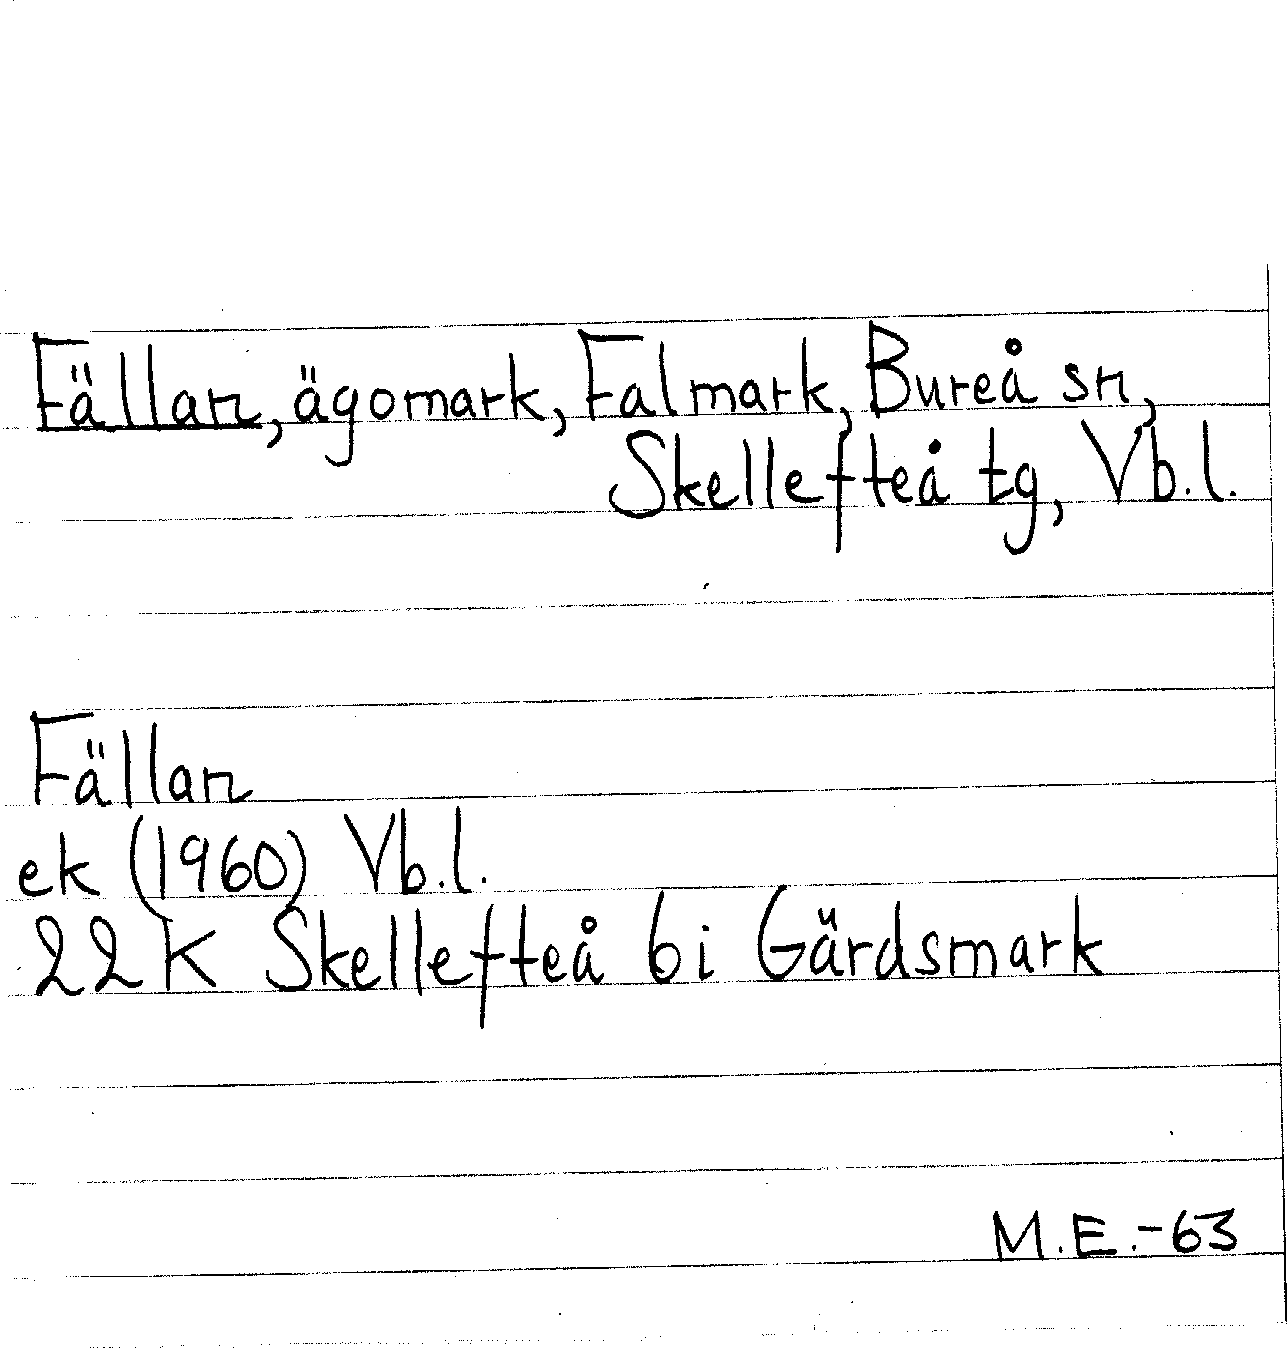 Fällan, ägomark, Falmark, Bureå sn,
Skellefteå tg, Vb.l.
Fällan
ek (1960) Vb.l.
22 K Skellefteå 6i Gärdsmark
M.E.-63